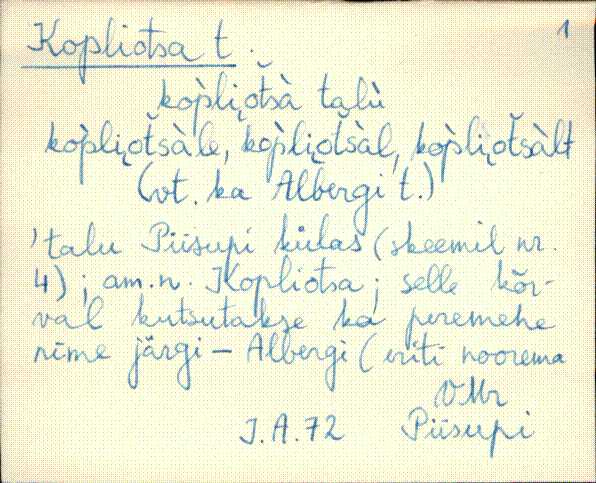 Kopliotsa t. 1
kòpli̯otšà talù
kòpli̯otšàle, kòpli̯otšàl, kòpli̯otšàlt
(vt. ka Albergi t.)
'talu Piisupi külas (skeemil nr.
4); am.n. Kopliotsa; selle kõr-
val kutsutakse ka peremehe
nime järgi – Albergi (eriti noorema
VMr
J.A.72 Piisupi